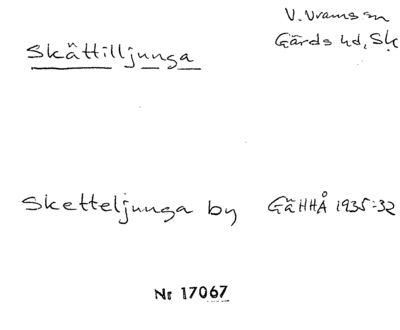 V. Vrams sn
Skättilljunga
Gärds hd, Sk
Sketteljunga by GäHHÅ 1935:32
Nr 17067